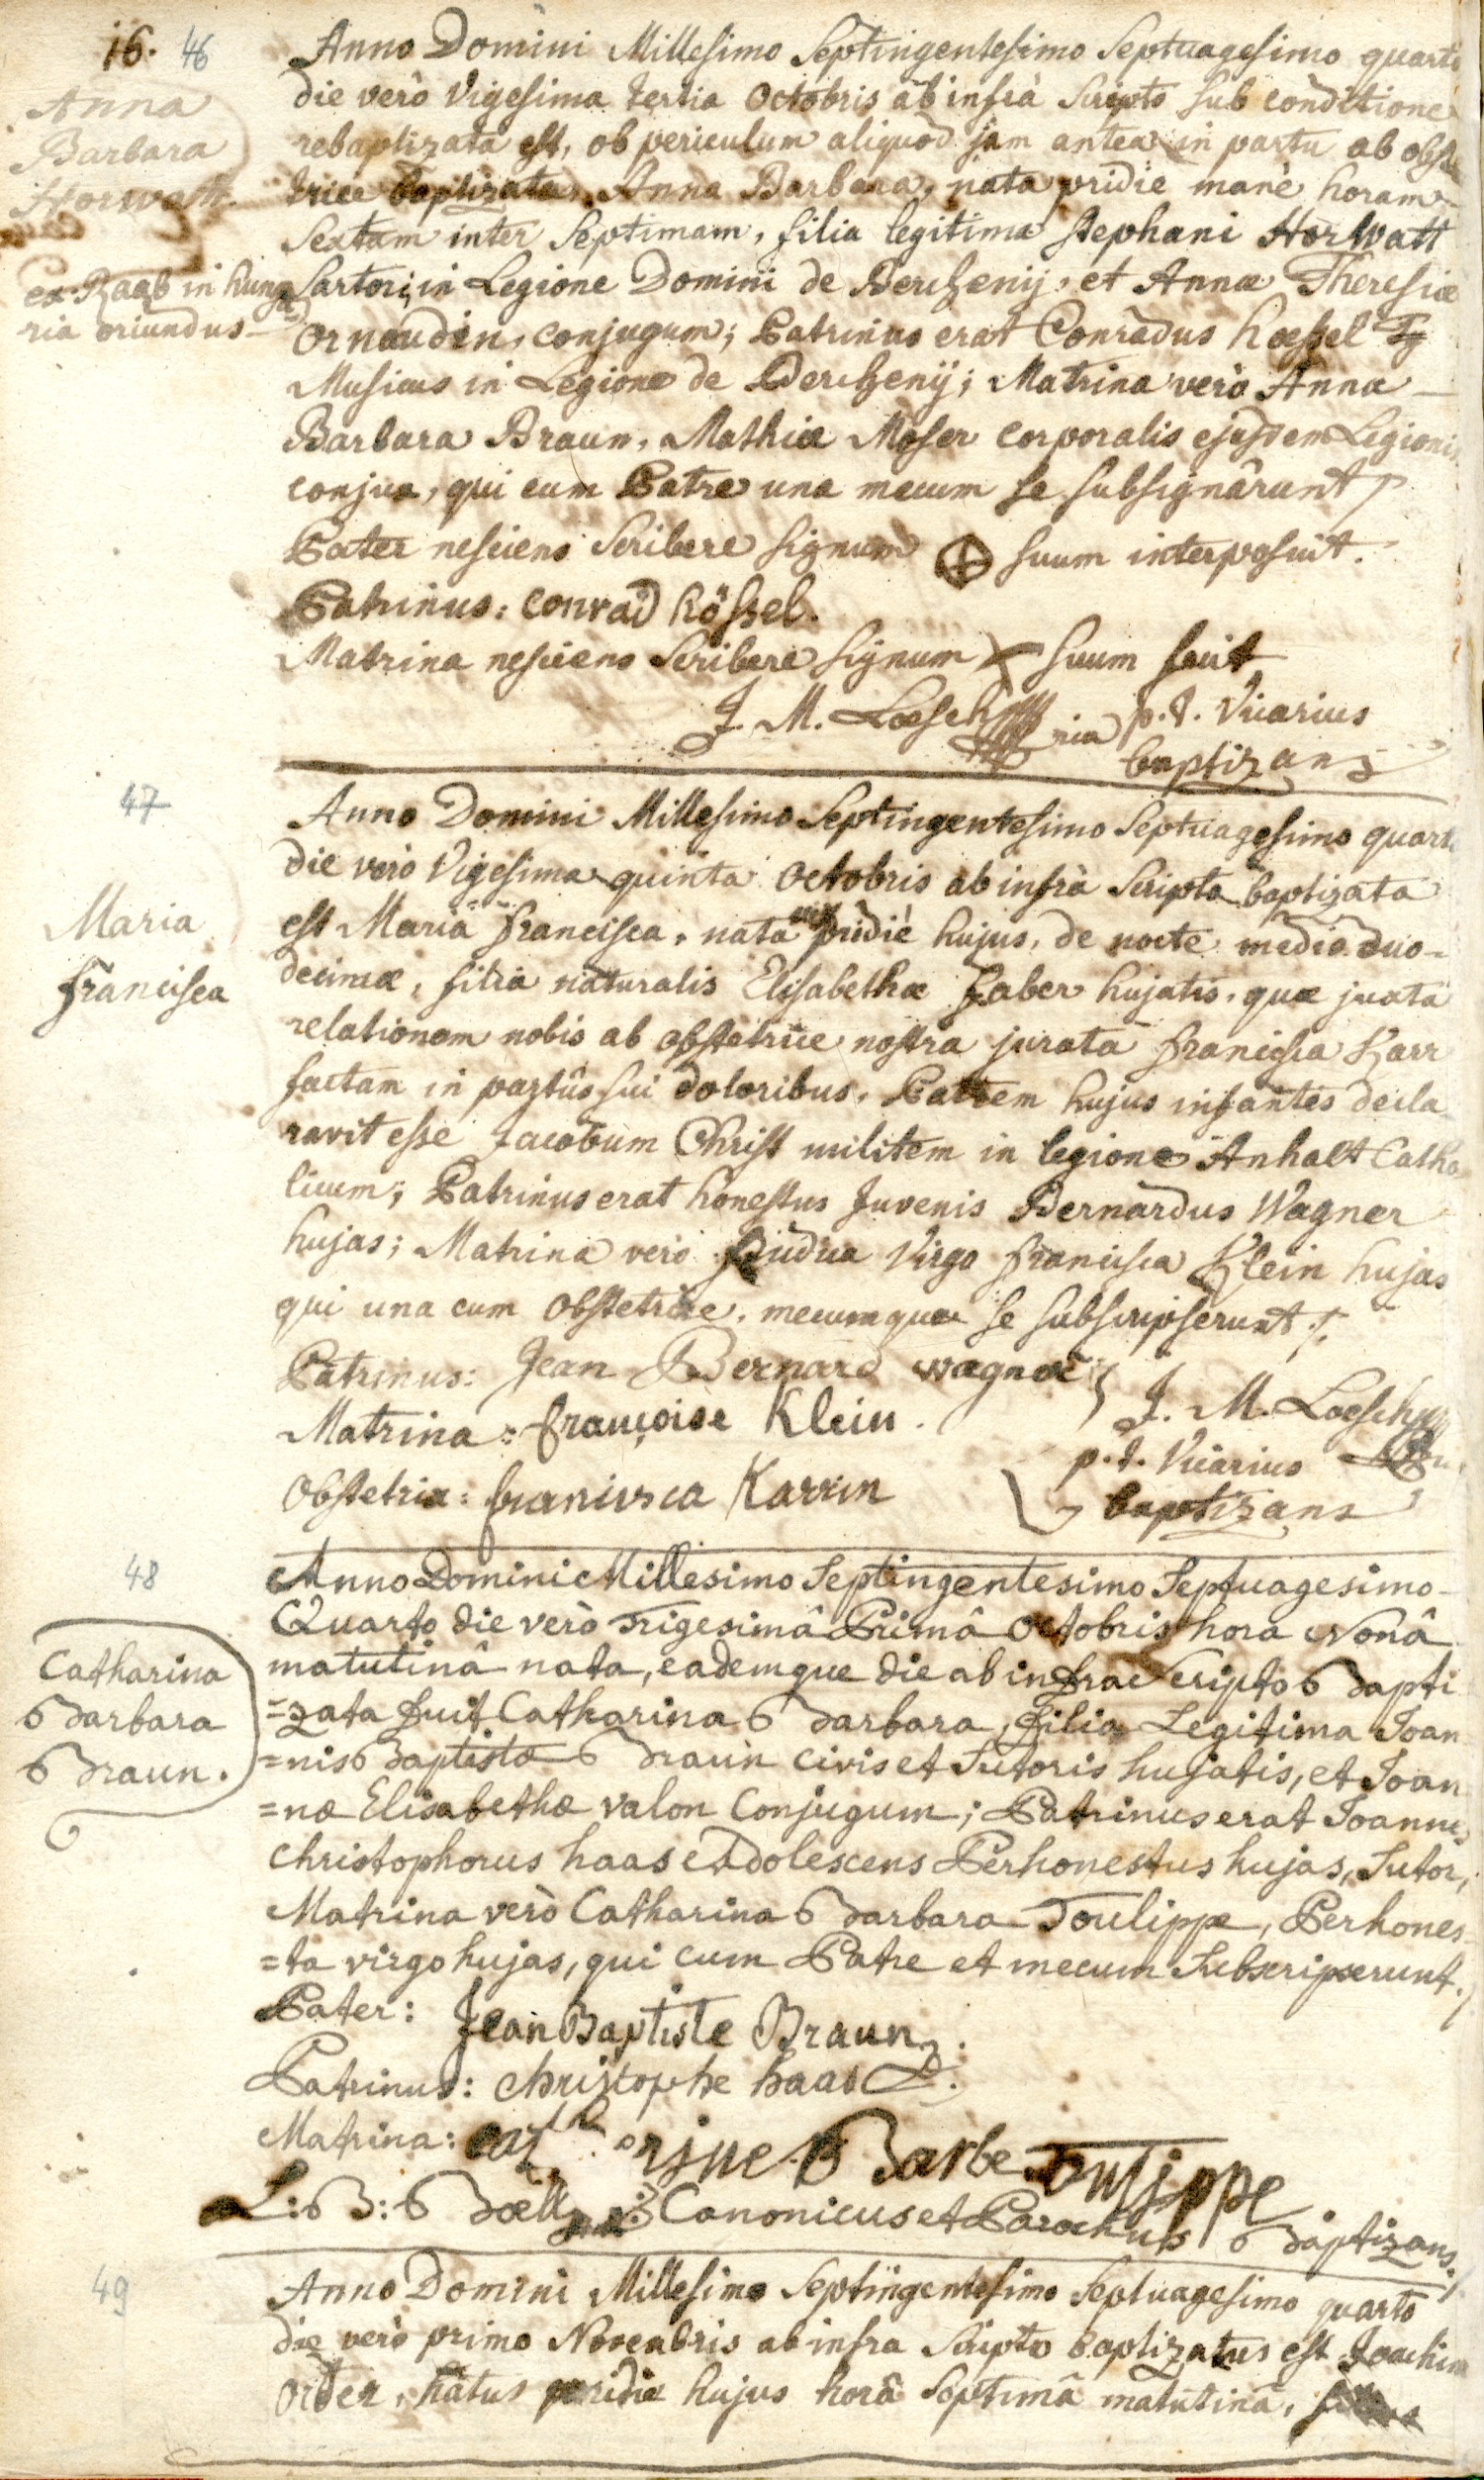 16. 46
Anna
Barbara
Horwatt.
ex Raab in hunga
ria oriundus
Anno Domini Millesimo Septingentesimo Septuagesimo quarto
die verò Vigesima tertia Octobris ab infrà Scripto sub conditione
rebaptizata est, ob periculum aliquod jam antea in partu ab obste
trice baptizata, Anna Barbara, nata pridie manè horam
Sextam inter Septimam, filia legitima Stephani Horwatt
Sartoris in Legione Domini de Berchenij, et Annæ Theresiæ
Ornaudin, conjugum; Patrinus erat Conradus hoessel
Musicus in Legione de Berchenij; Matrina verò Anna
Barbara Braun, Mathiæ Moser corporalis ejusdem Legionis
conjux, qui cum Patre una mecum se subsignârunt
Pater nesciens Scribere signum suum interposuit.
Patrinus: Conrad hössel.
Matrina nesciens Scribere signum X suum fecit
J. M. Loesch p.t. Vicarius
baptizans
47
Maria
francisca
Anno Domini Millesimo Septingentesimo Septuagesimo quarto
die verò Vigesima quinta Octobris ab infrà Scripto baptizata
est Maria francisca, nata pridiè hujus, de nocte mediâ duo-
decimæ, filia naturalis Elisabethæ Faber hujatis, quæ juxta
relationem nobis ab obstetrice nostra jurata francisca Karr
factam in partûs sui doloribus, Patrem hujus infantes decla
ravit esse Jacobum Christ militem in legione Anhalt Catho
licum; Patrinus erat honestus Juvenis Bernardus Wagner
hujas; Matrina verò pudica Virgo francisca Klein hujas
qui una cum Obstetrice, mecumque se subscripserunt
Patrinus: Jean Bernard wagner
Matrina: françoise Klein.
Obstetrix: francisca Karrin
J. M. Loesch
p.t. Vicarius
baptizans
48
Catharina
Barbara
Braun.
Anno Domini Millesimo Septingentesimo Septuagesimo
Quarto die verò Trigesimâ Primâ Octobris hora Nonâ
matutinâ nata, eademque die ab infra Scripto Bapti
=zata fuit Catharina Barbara, filia Legitima Joan
=nis Baptistæ Braun civis et Sutoris hujatis, et Joan
=næ Elisabethæ valon Conjugum; Patrinus erat Joannes
Christophorus haas Adolescens Perhonestus hujas, Sutor,
Matrina verò Catharina Barbara Toulippe, Perhones
=ta virgo hujas, qui cum Patre et mecum Subscripserunt.
Pater: Jean Baptiste Braun.
Patrinus: Christophe haas
Matrina: catherine Barbe Toulippe
L: B: Boell Canonicus et Parochus Baptizans.
49
Anno Domini Millesimo Septingentesimo Septuagesimo quarto
die verò primo Novembris ab infra Scripto baptizatus est Joachim
natus pridie hujus horâ Septimâ matutinâ,